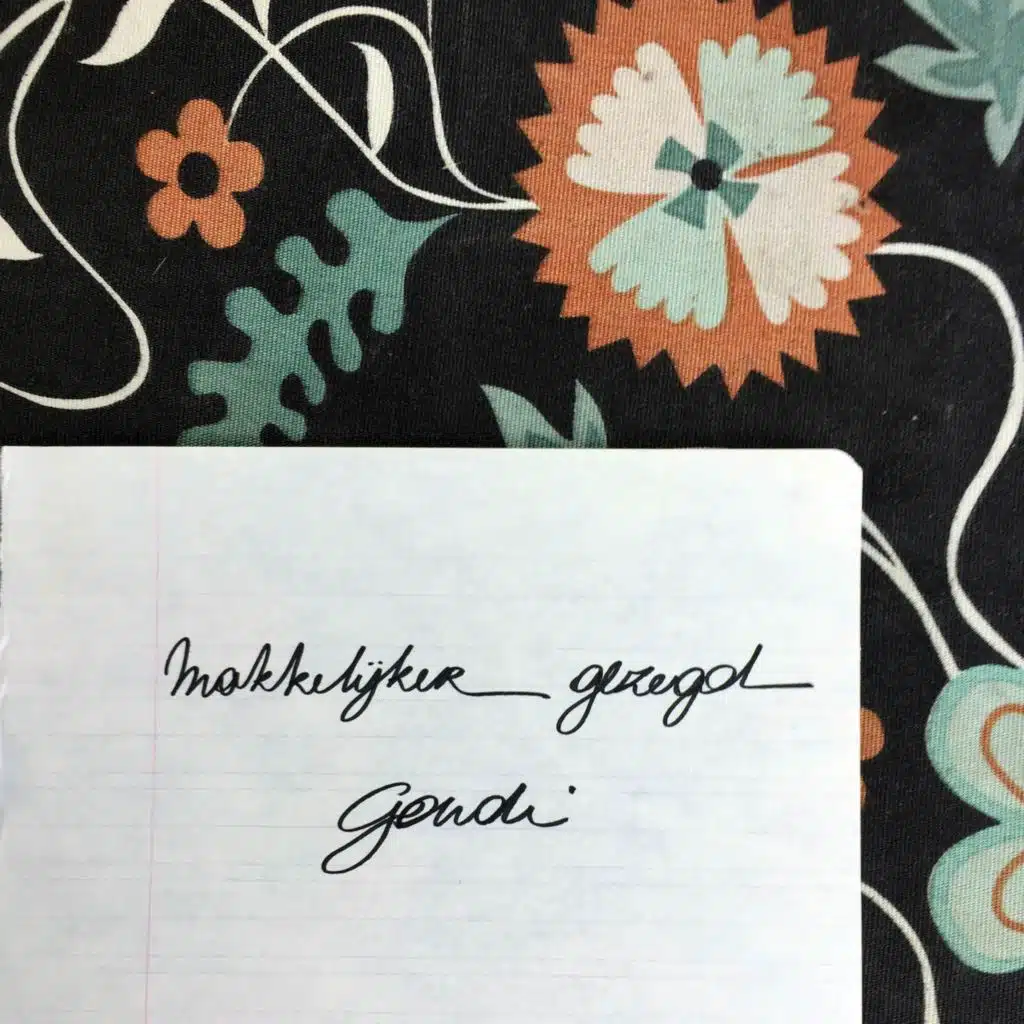 Makkelijker gezegd
Goudi